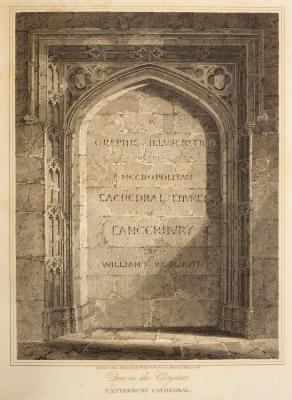 A
GRAPHIC ILLUSTRATION
of the
METROPOLITAN
CATHEDRAL CHURCH
of
CANTERBURY
BY
WILLIAM WOOLNOTH
in the Cloysters,
CANTERBURY CATHEDRAL.